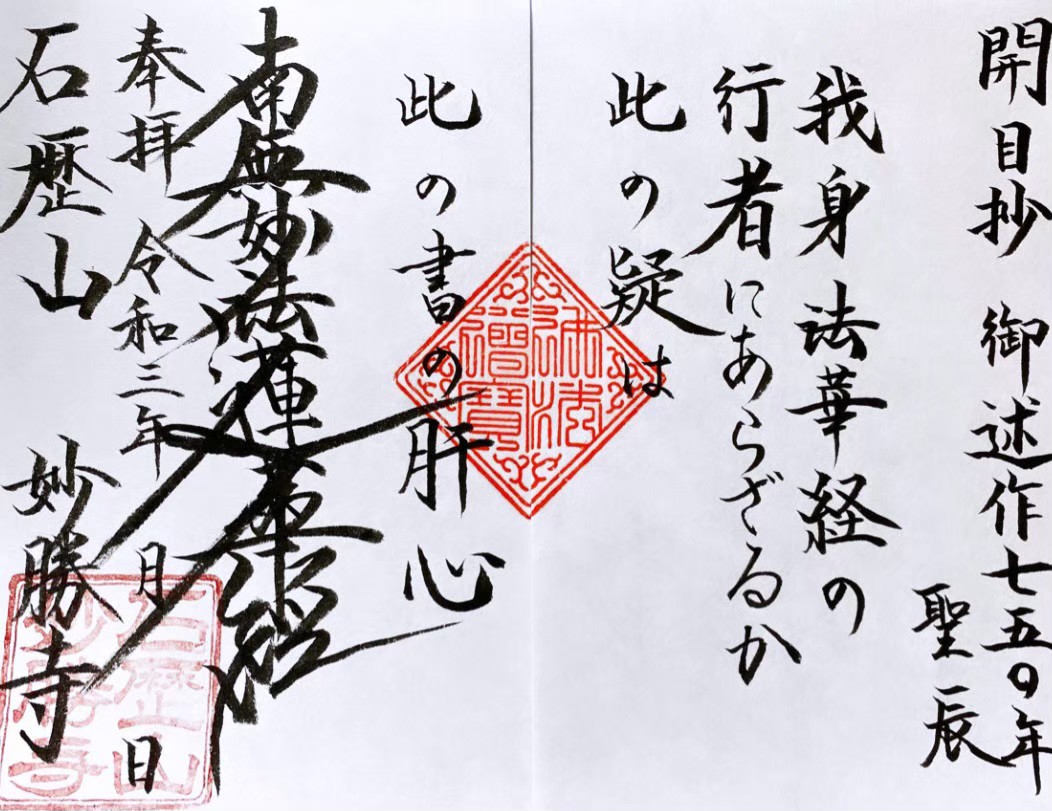 開目抄 御述作七五〇年
聖辰
我身法華経の
行者にあらざるか
此の疑は
此の書の肝心
南無妙法蓮華経
奉拝 令和三年 月 日
石歴山 妙勝寺
石歴山
妙勝寺